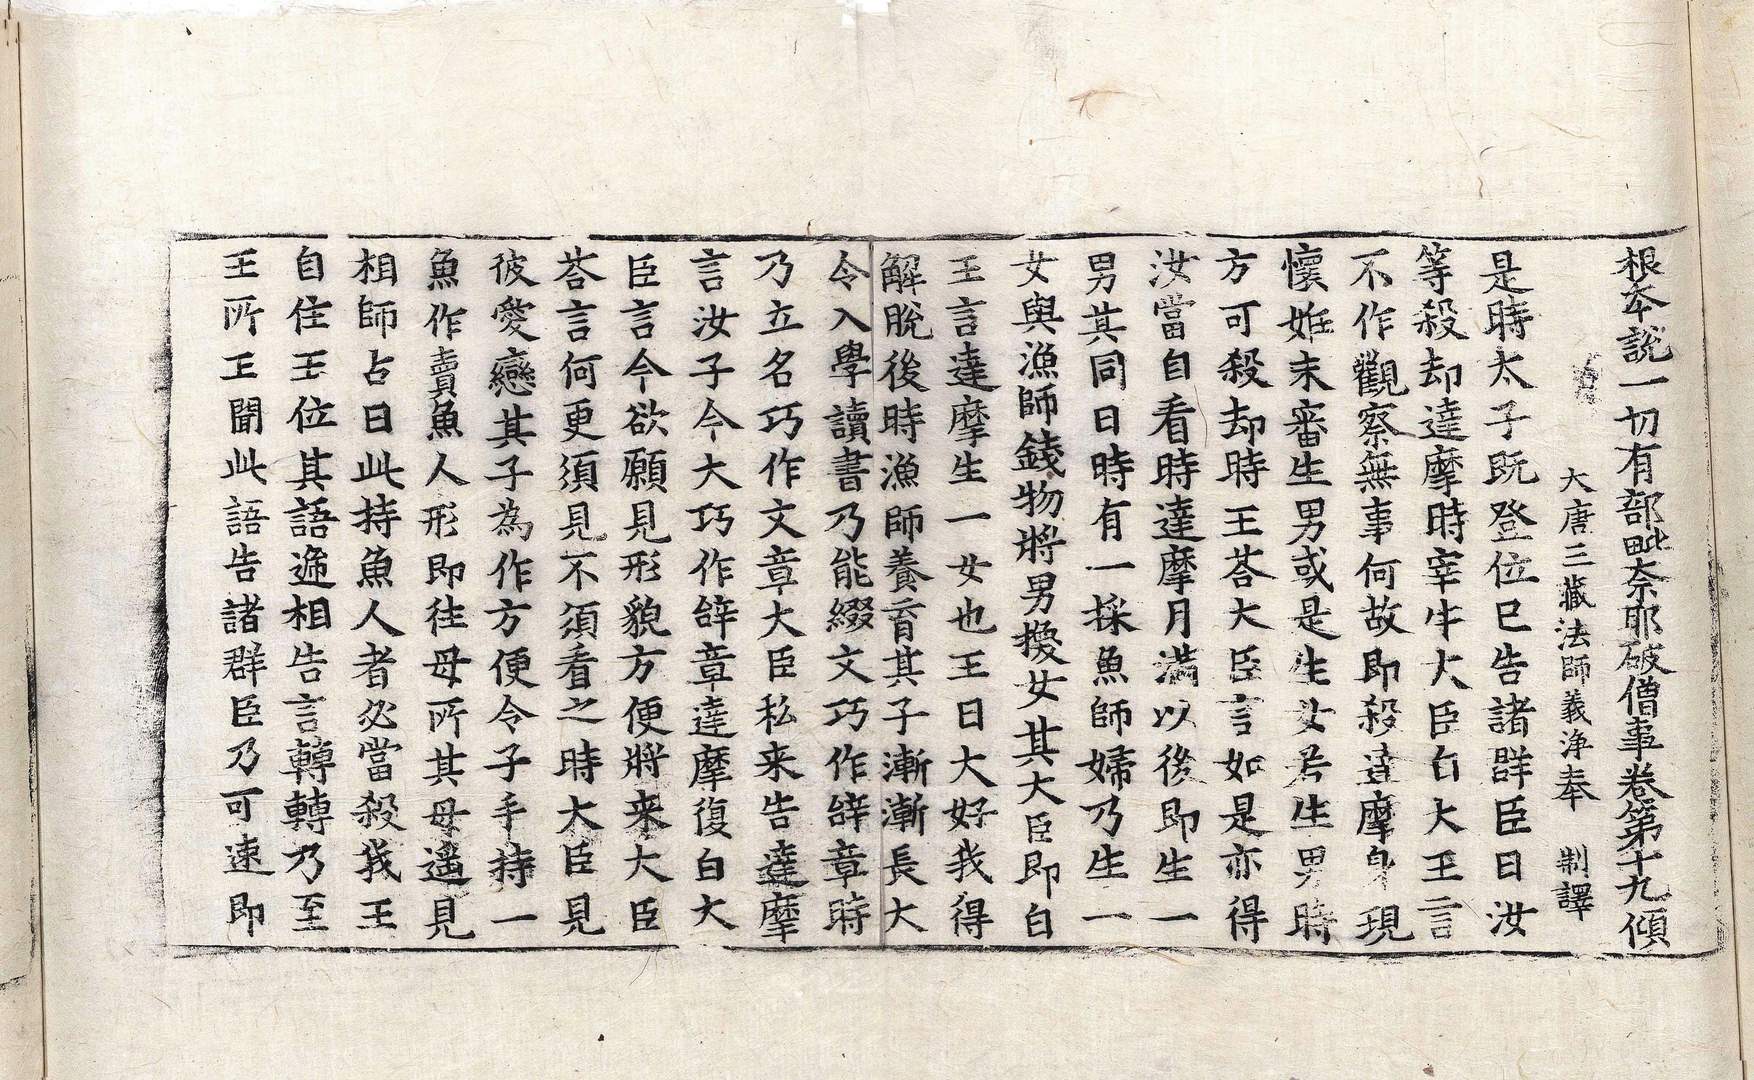 根本說一切有部毗奈耶破僧事卷第十九傾
大唐三藏法師義淨奉 制譯
是時太子既登位已告諸群臣曰汝
等殺却達摩時宰牛大臣白大王言
不作觀察無事何故即殺達摩身現
懷姙未審生男或是生女若生男時
方可殺却時王荅大臣言如是亦得
汝當自看時達摩月滿以後即生一
男其同日時有一採魚師婦乃生一
女與漁師錢物將男換女其大臣即白
王言達摩生一女也王曰大好我得
解脫後時漁師養育其子漸漸長大
令入學讀書乃能綴文巧作辝章時
乃立名巧作文章大臣私来告達摩
言汝子今大巧作辝章達摩復白大
臣言今欲願見形貌方便將来大臣
荅言何更須見不須看之時大臣見
彼愛戀其子為作方便令子手持一
魚作賣魚人形即往母所其母遥見
相師占曰此持魚人者必當殺我王
自住王位其語遞相告言轉轉乃至
王所王聞此語告諸群臣乃可速即